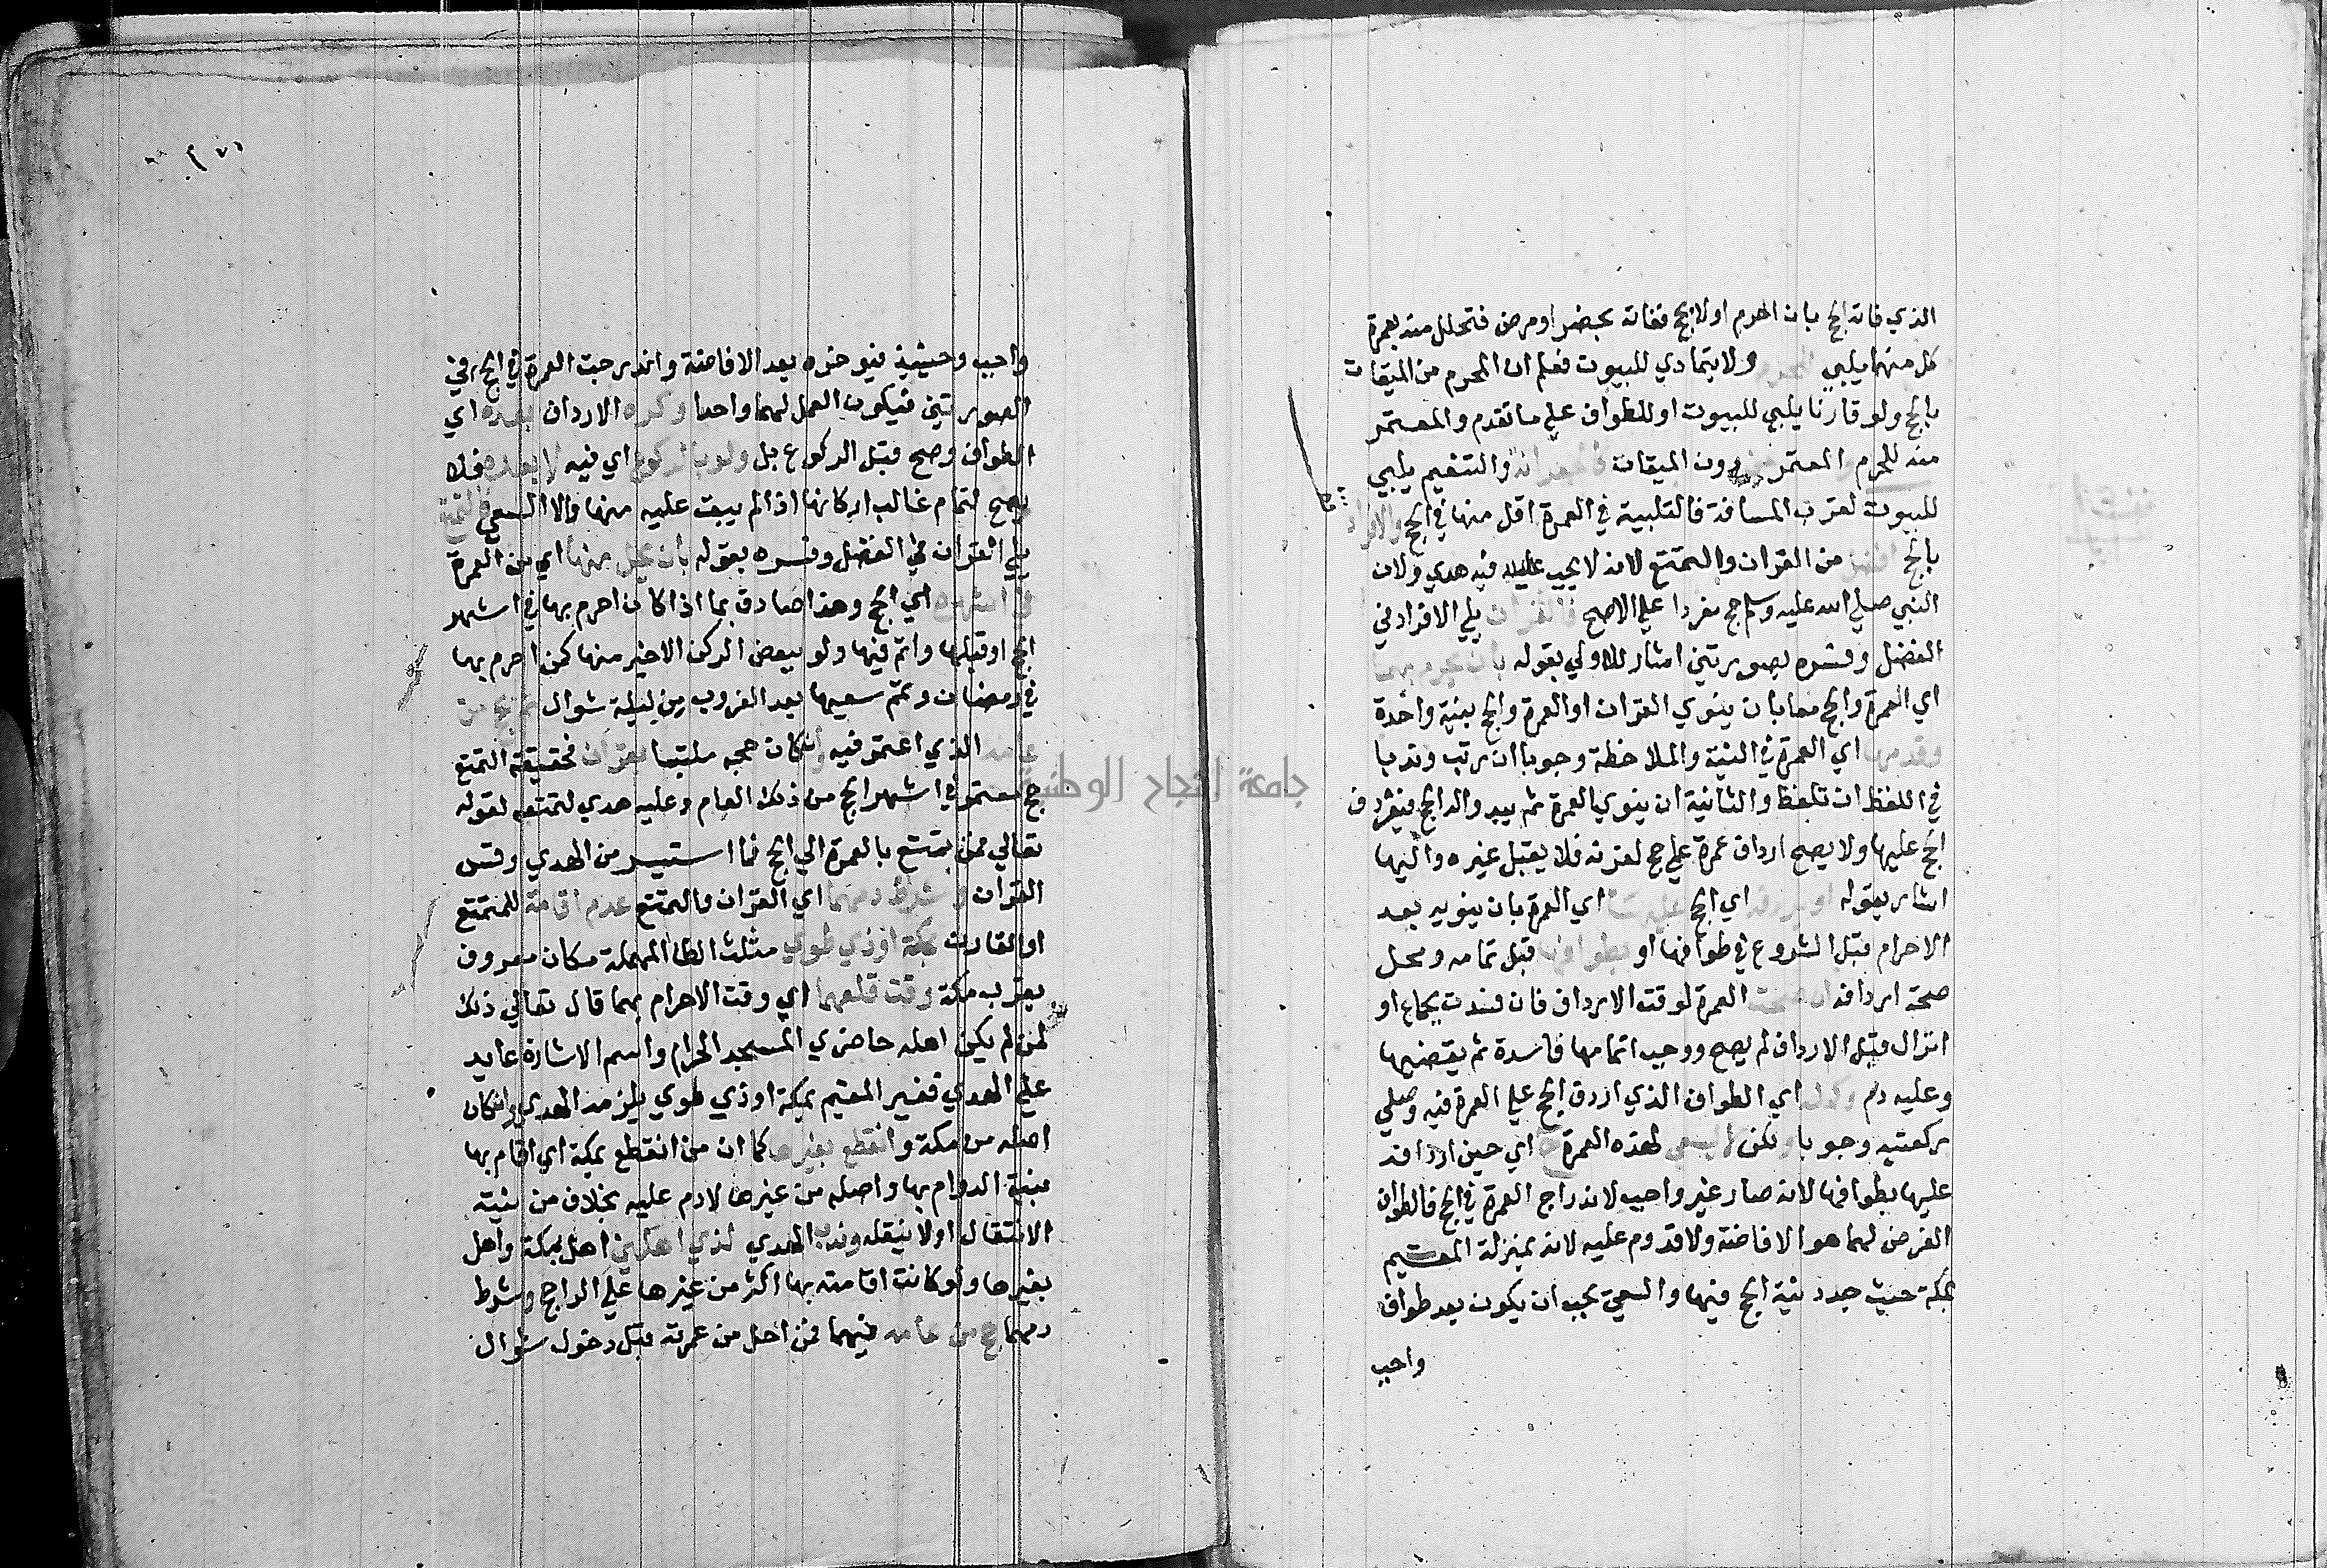 الذي فاته الحج بان احرم اولا بحج ففاته بحصر او مرض فتحلل منه بعمرة
كل منهما يلبي للحرم ولا يتمادي للبيوت فعلم ان المحرم من الميقات
بالحج ولو قارنا يلبي للبيوت او للطواف علي ما تقدم والمعتمر
منه للحرم والمعتمر من دون الميقات كالجعرانة والتنعيم يلبي
للبيوت لقرب المسافة فالتلبية في العمرة اقل منها في الحج والافراد
بالحج افضل من القران والتمتع لانه لا يجب عليه فيه هدي ولان
النبي صلي الله عليه وسلم حج مفردا علي الاصح فالقران يلي الافراد في
الفضل وفسره بصورتين اشار للاولي بقوله بان يحرم بهما
اي العمرة والحج معا بان ينوي القران او العمرة والحج بنية واحدة
وقدمها اي العمرة في النية والملاحظة وجوبا ان رتب وندبا
في اللفظ ان تلفظ والثانية ان ينوي العمرة ثم يبدو له الحج فيردف
الحج عليها ولا يصح ارداف عمرة علي حج لقوته فلا يقبل غيره واليها
اشار بقوله او يردفه اي الحج عليها اي العمرة بان ينويه بعد
الاحرام قبل الشروع في طوافها او بطوافها قبل تمامه ومحل
صحة اردافه ان صحت العمرة لوقت الارداف فان فسدت بجماع او
انزال قبل الارداف لم يصح ووجب اتمامها فاسدة ثم يقضيها
وعليه دم وكمله اي الطواف الذي اردف الحج علي العمرة فيه وصلي
ركعتيه وجوبا ولكن لا يسعي لهذه العمرة اي حين اردافه
عليها بطوافها لانه صار غير واجب لاندراج العمرة في الحج فالطواف
الفرض لهما هو الافاضة ولا قدوم عليه لانه بمنزلة المقيم
بمكة حيث جدد نية الحج فيها والسعي يجب ان يكون بعد طواف
واجب
واجب وحينئذ فيوخره بعد الافاضة واندرجت العمرة في الحج في
الصورتين فيكون العمل لهما واحدا وكره الارداف بعده اي
الطواف وصح قبل الركوع بل ولو بالركوع اي فيه لا بعده فلا
يصح لتمام غالب اركانها اذ لم يبق عليه منها الا السعي فالتمتع
يلي القران في الفضل وفسره بقوله بان يحل منها اي من العمرة
في اشهره اي الحج وهذا صادق بما اذا كان احرم بها في اشهر
الحج او قبلها واتم فيها ولو ببعض الركن الاخير منها كمن احرم بها
في رمضان وتمم سعيها بعد الغروب من ليلة شوال ثم يحج من
عامه الذي اعتمر فيه وان كان حجه ملتبسا بقران فحقيقة التمتع
حج معتمر في اشهر الحج من ذلك العام وعليه هدي لتمتعه لقوله
تعالي فمن تمتع بالعمرة الي الحج فما استيسر من الهدي وقس
القران وشرط دمهما اي القران والتمتع عدم اقامة للمتمتع
او القارن بمكة او ذي طوي مثلث الطا المهملة مكان معروف
بقرب مكة وقت فعلهما اي وقت الاحرام بهما قال تعالي ذلك
لمن لم يكن اهله حاضري المسجد الحرام واسم الاشارة عايد
علي الهدي فغير المقيم بمكة او ذي طوي يلزمه الهدي وان كان
اصله من مكة وانقطع بغيرها كما ان من انقطع بمكة اي اقام بها
بنية الدوام بها واصله من غيرها لا دم عليه بخلاف من نيته
الانتقال او لا نية له وندب الهدي لذي اهلين اهل بمكة واهل
بغيرها ولو كانت اقامته بها اكثر من غيرها علي الراجح وشرط
دمهما حج من عامه فيهما فمن احل من عمرته قبل دخول شوال
جامعة النجاح الوطنية